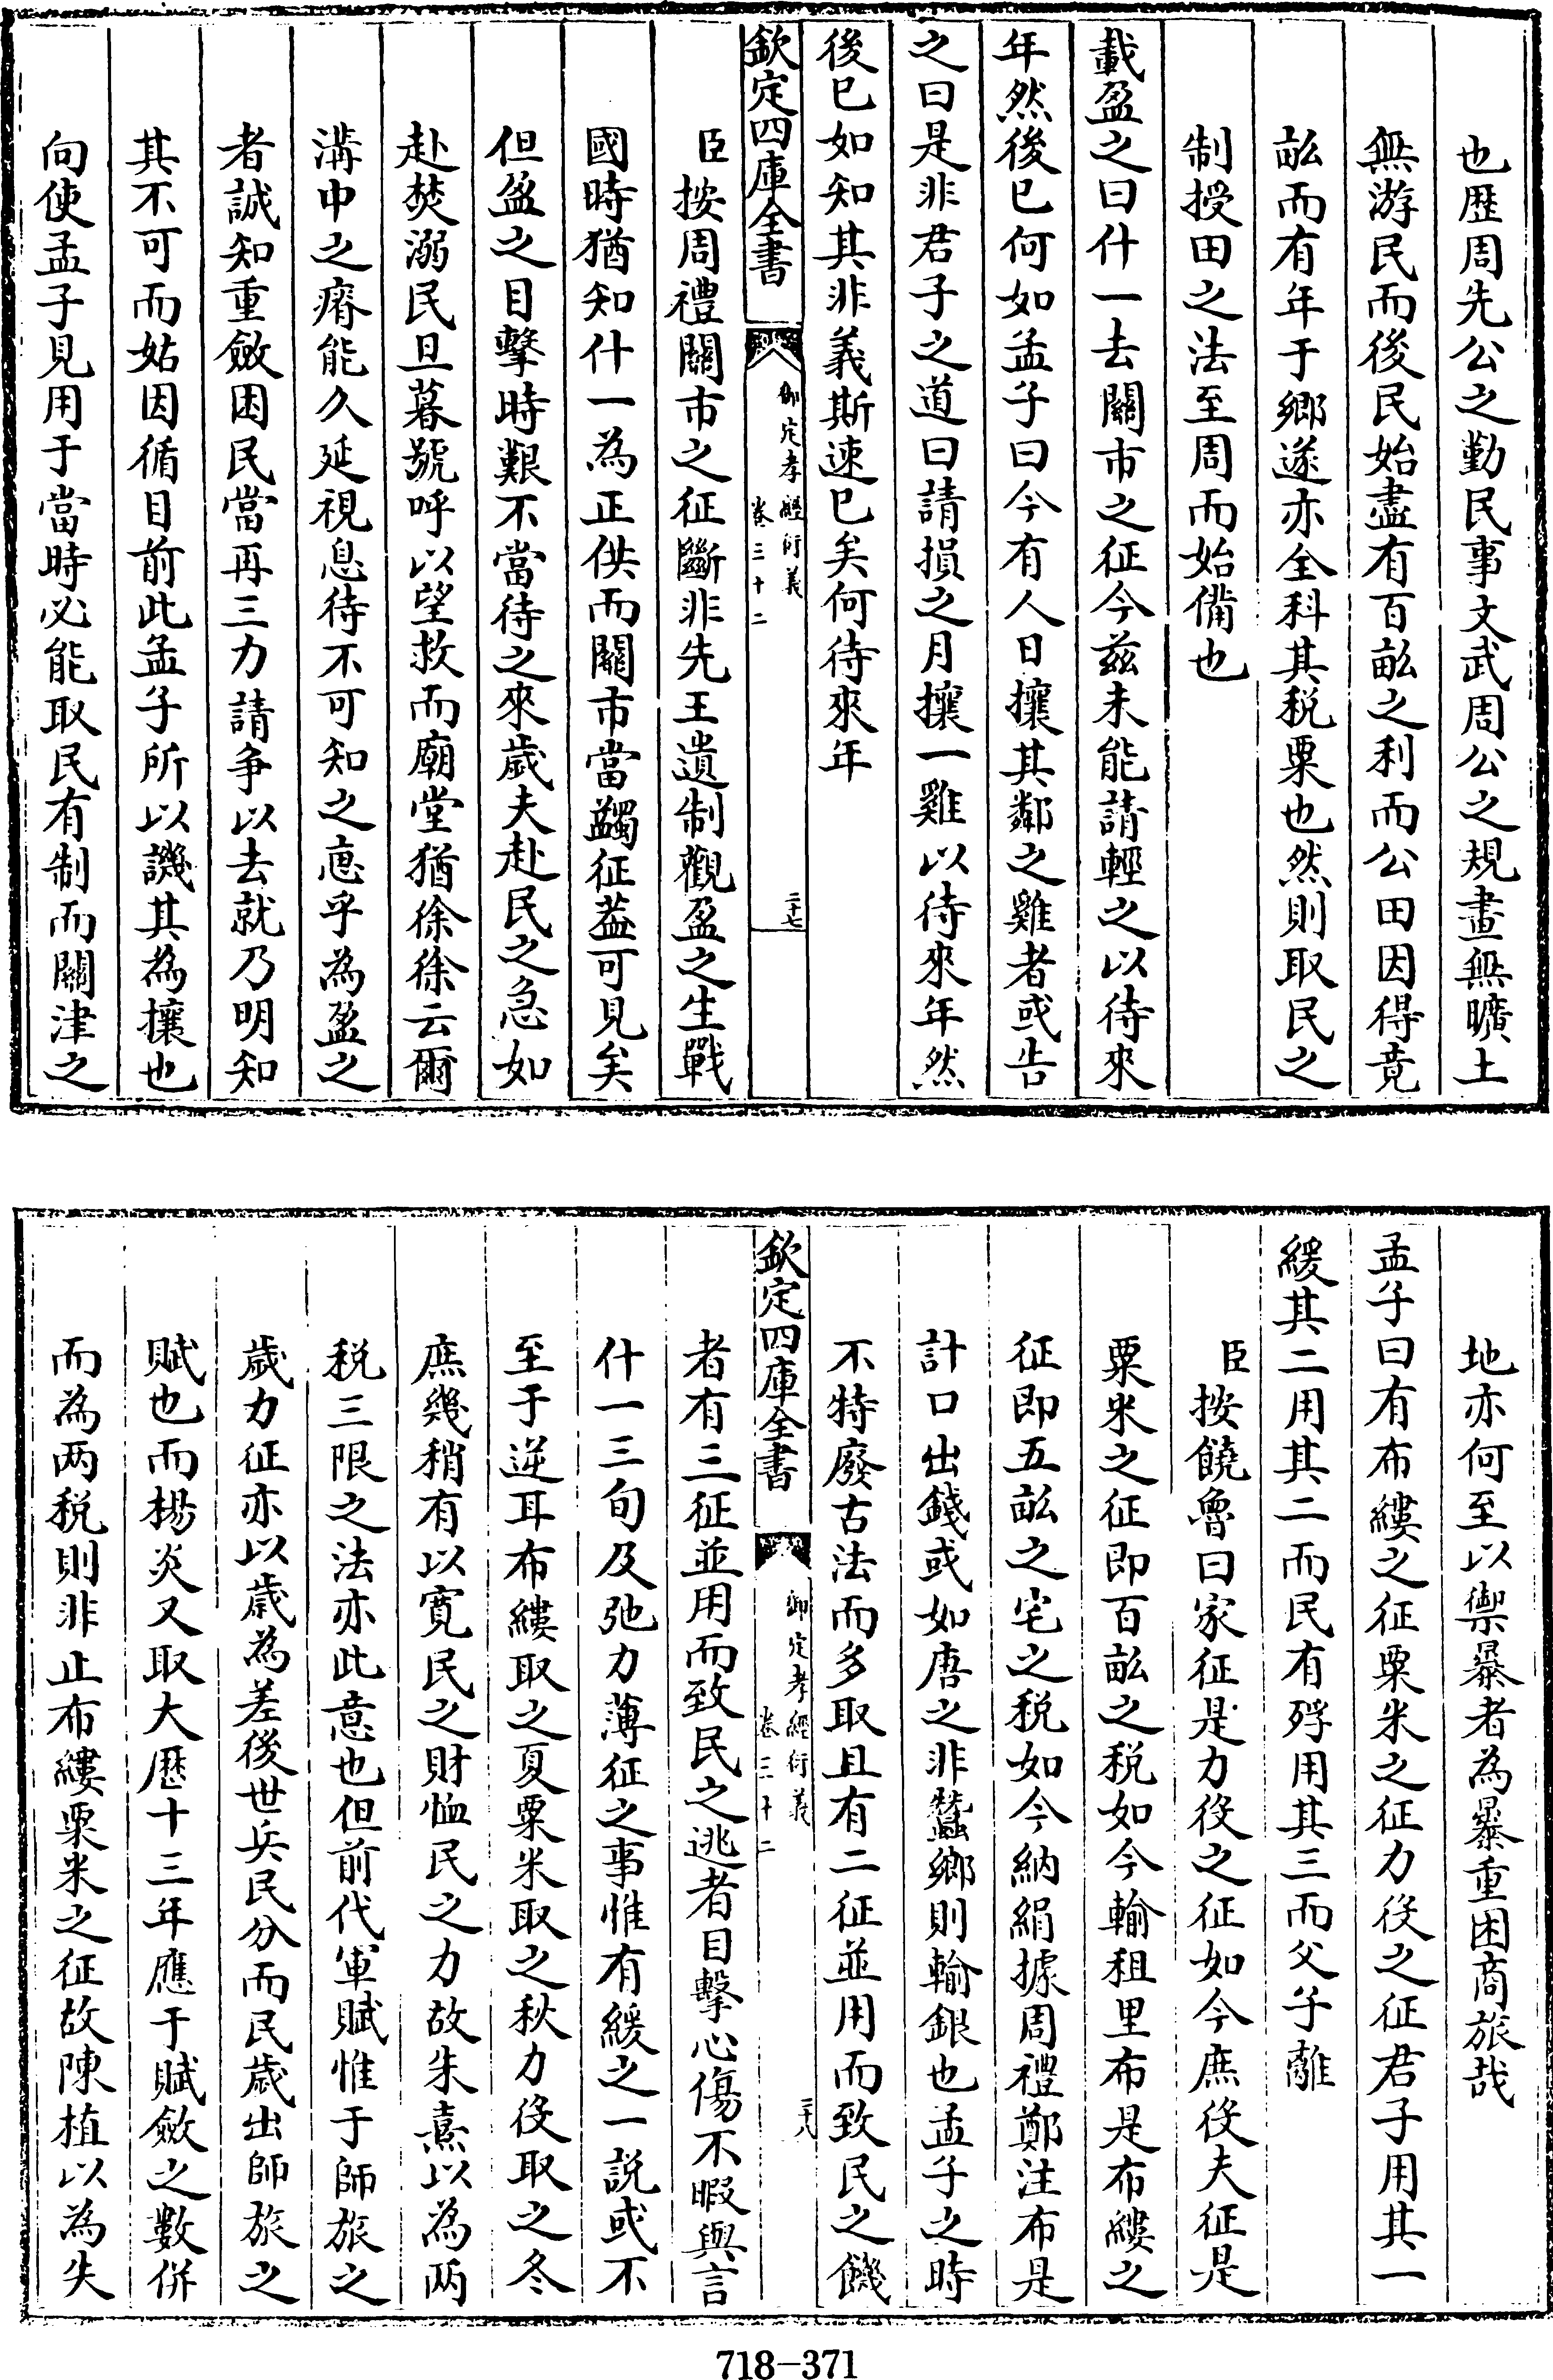 也歷周先公之勤民事文武周公之規畫無曠土
無游民而後民始盡有百畝之利而公田因得竟
畝而有年于鄉遂亦全科其税粟也然則取民之
制授田之法至周而始備也
載盈之曰什一去關市之征今兹未能請輕之以待來
年然後已何如孟子曰今有人日攘其鄰之雞者或告
之曰是非君子之道曰請損之月攘一雞以待來年然
後已如知其非義斯速已矣何待來年
欽定四庫全書
御定孝經衍義
卷三十二
二十七
臣按周禮關市之征斷非先王遺制觀盈之生戰
國時猶知什一為正供而關市當蠲征葢可見矣
但盈之目擊時艱不當待之來歲夫赴民之急如
赴焚溺民旦暮號呼以望救而廟堂猶徐徐云爾
溝中之瘠能久延視息待不可知之恵乎為盈之
者誠知重斂困民當再三力請争以去就乃明知
其不可而姑因循目前此孟子所以譏其為攘也
向使孟子見用于當時必能取民有制而關津之
地亦何至以禦暴者為暴重困商旅哉
孟子曰有布縷之征粟米之征力役之征君子用其一
緩其二用其二而民有殍用其三而父子離
臣按饒魯曰家征是力役之征如今庶役夫征是
粟米之征即百畝之税如今輸租里布是布縷之
征即五畝之宅之税如今納絹據周禮鄭注布是
計口出錢或如唐之非蠶鄉則輸銀也孟子之時
不特廢古法而多取且有二征並用而致民之饑
欽定四庫全書
御定孝經衍義
卷三十二
二十八
者有三征並用而致民之逃者目擊心傷不暇與言
什一三旬及弛力薄征之事惟有緩之一説或不
至于逆耳布縷取之夏粟米取之秋力役取之冬
庶幾稍有以寛民之財恤民之力故朱熹以為兩
税三限之法亦此意也但前代軍賦惟于師旅之
歲力征亦以歲為差後世兵民分而民歲出師旅之
賦也而楊炎又取大歷十三年應于賦斂之數併
而為两税則非止布縷粟米之征故陳植以為失
718-371